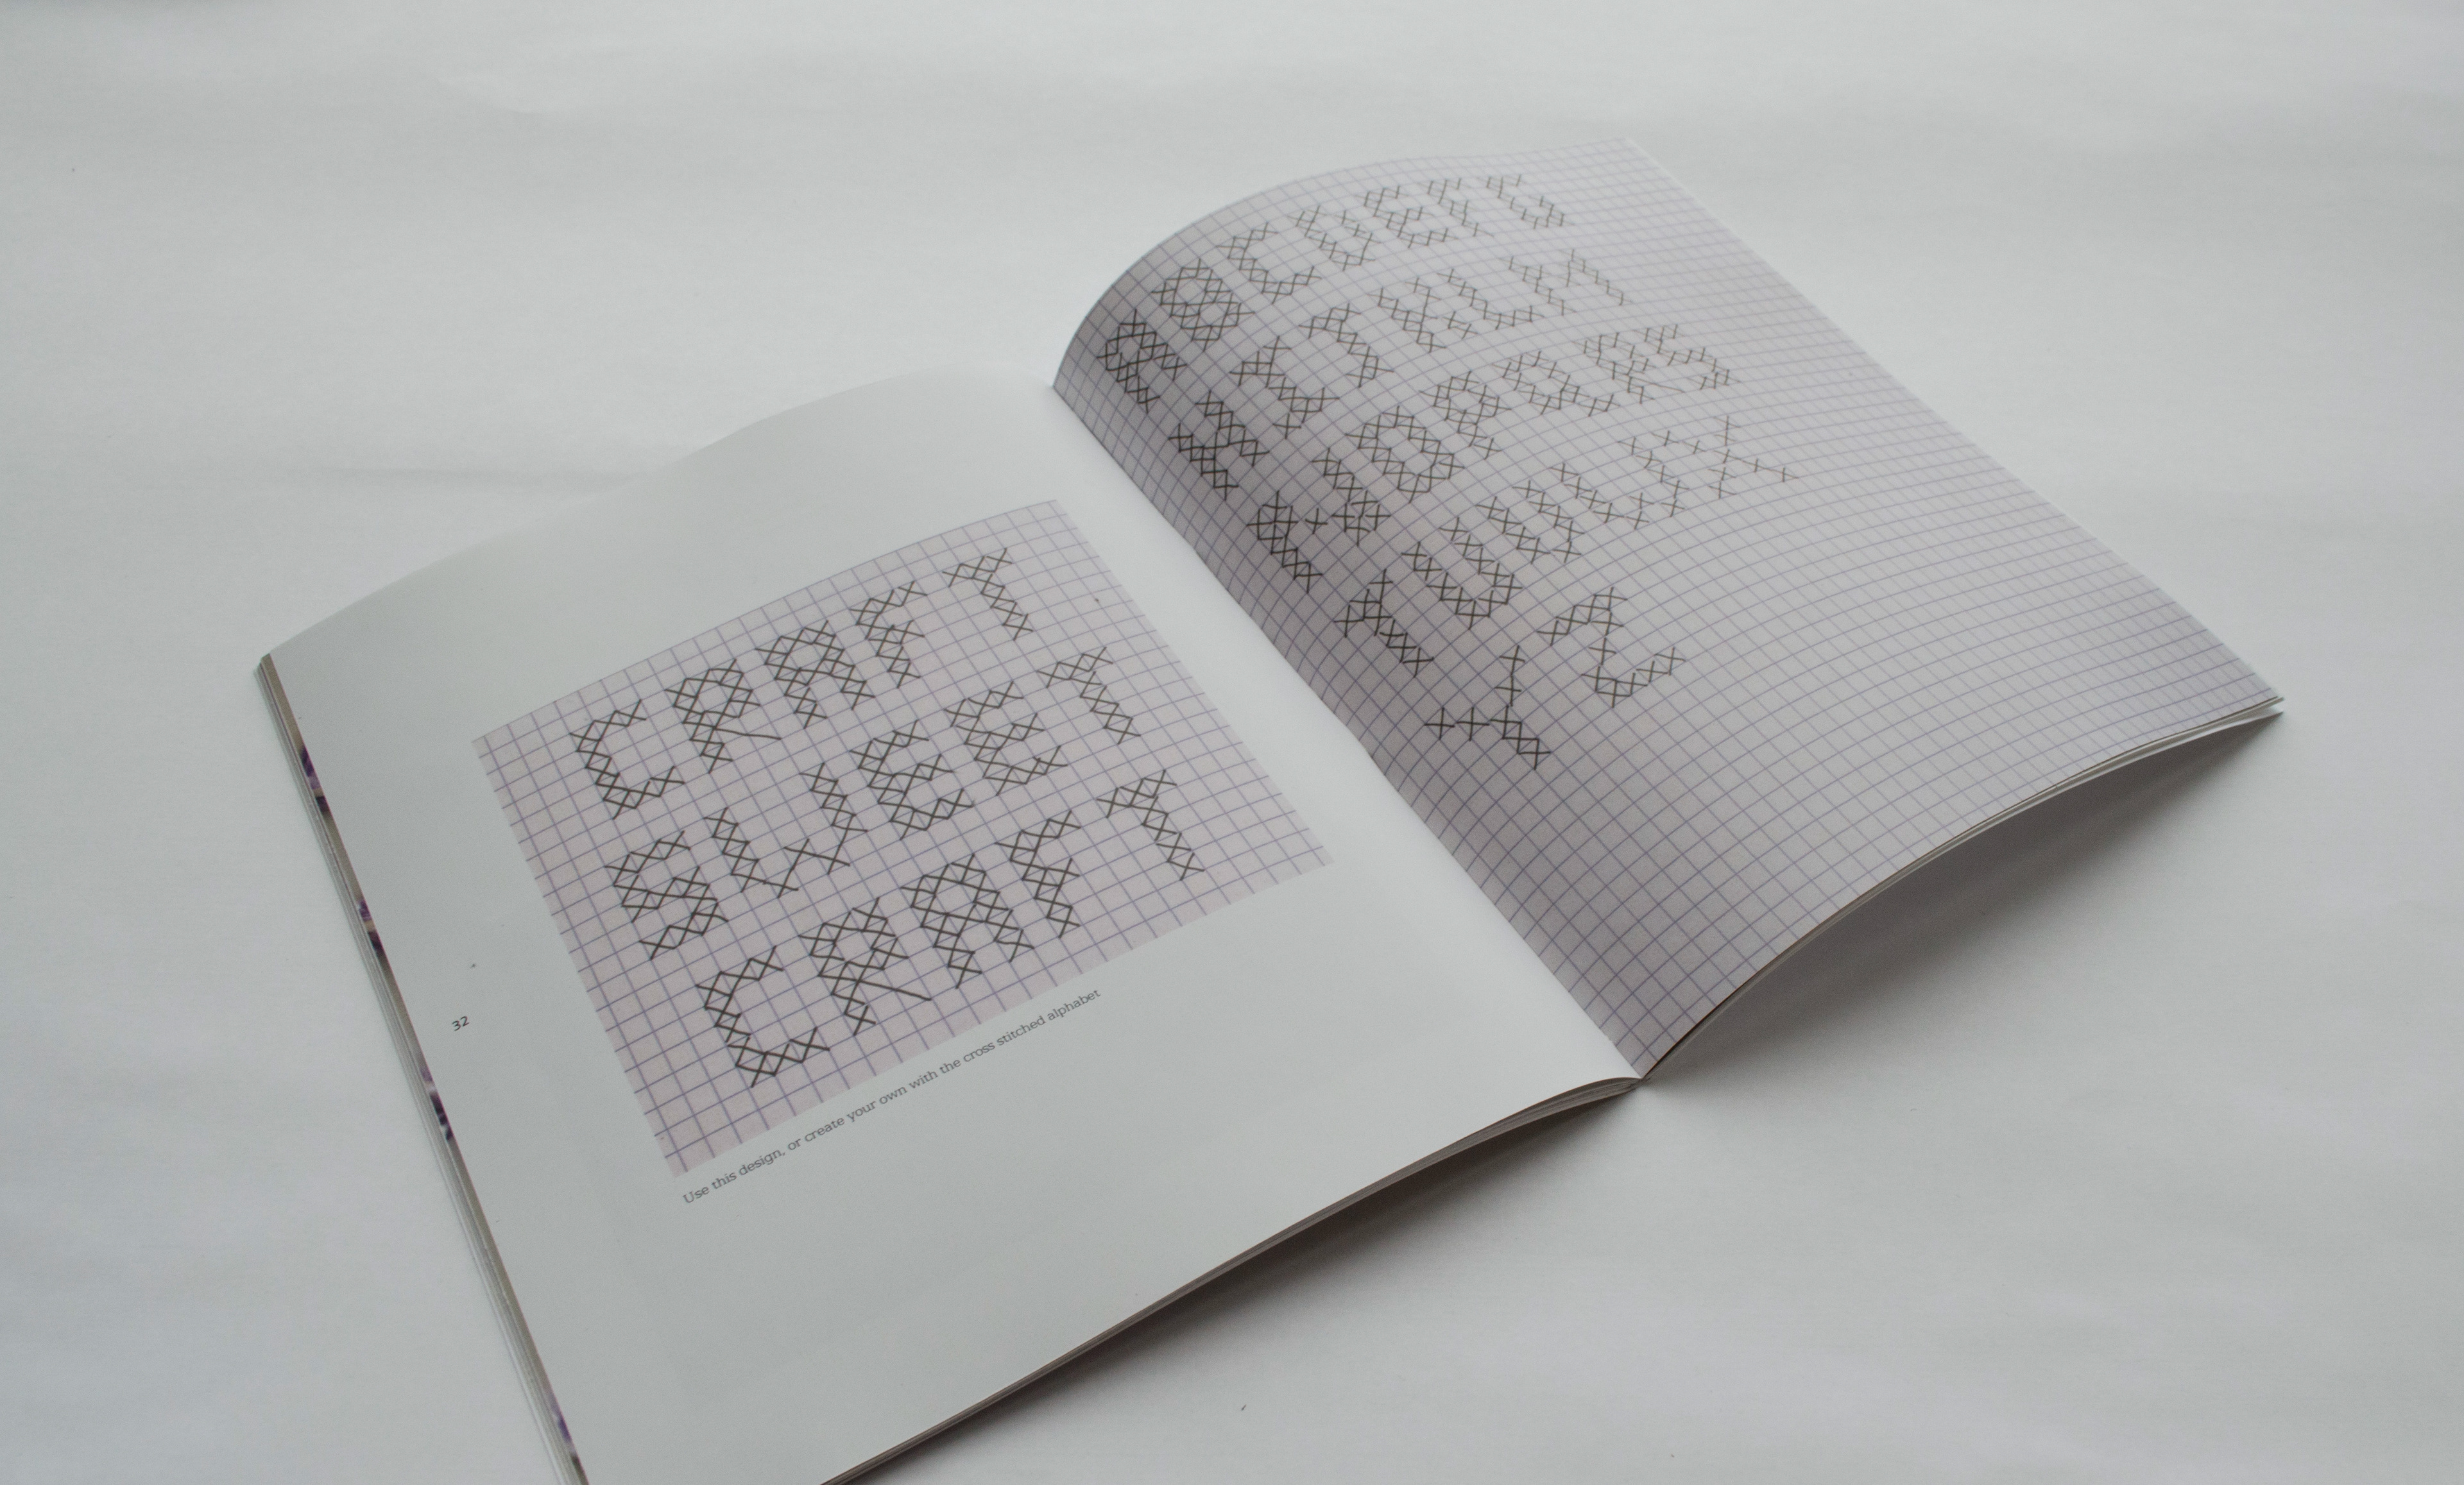 CRAFT
SWEET
CRAFT
Use this design, or create your own with the cross stitched alphabet
32
ABCDEFG
HIJKLM
NOPQRS
TUVWX
YZ